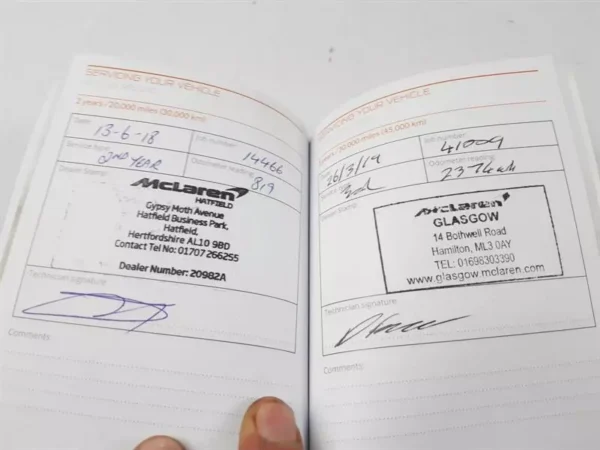 SERVICING YOUR VEHICLE
2 years / 20,000 miles (30,000 km)
Date:
13-6-18
Job number:
14466
Service type:
2ND YEAR
Odometer reading:
819
Dealer stamp:
McLaren
HATFIELD
Gypsy Moth Avenue
Hatfield Business Park,
Hatfield,
Hertfordshire AL10 9BD
Contact Tel No: 01707 266255
Dealer Number: 20982A
Technician signature
Comments
SERVICING YOUR VEHICLE
years / 30,000 miles (45,000 km)
26/3/19
Job number:
41009
3rd
Odometer reading:
Dealer stamp:
McLaren
GLASGOW
14 Bothwell Road
Hamilton, ML3 0AY
TEL: 01698303390
www.glasgow.mclaren.com
Technician signature
Comments